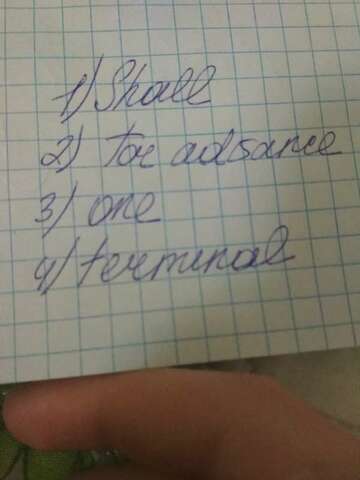 1) Shall
2) for advance
3) one
4) terminal